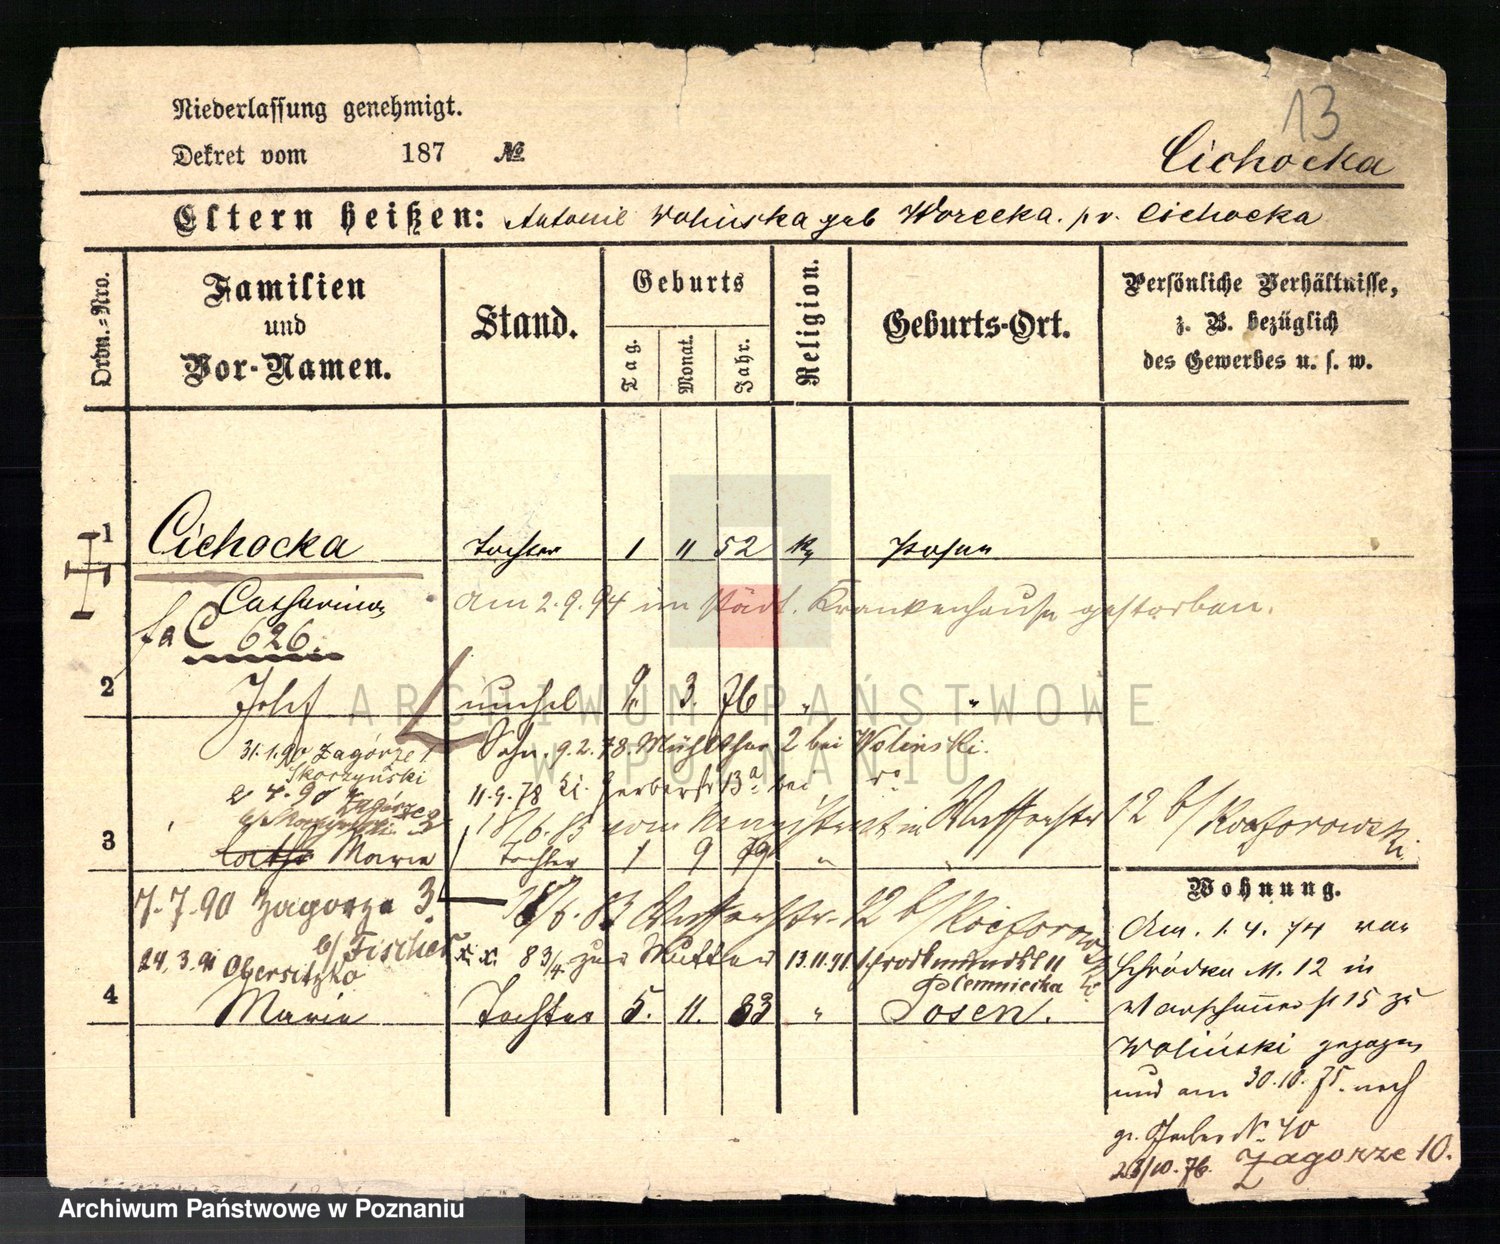 Niederlassung genehmigt.
13
Dekret vom 187 №
Cichocka
Eltern heißen: Antonie Wolinska geb Worecka. pr. Cichocka
Ordn.-Nro.
Familien und Vor-Namen.
Stand.
Geburts
Tag.
Monat.
Jahr.
Religion.
Geburts-Ort.
Persönliche Verhältnisse,
z. B. bezüglich
des Gewerbes u. s. w.
1 Cichocka Tochter 1 11 52 k. Posen
Catharina am 2.9.94 im städt. Krankenhause gestorben.
C 626.
2 Josef unehel 9. 3. 76 " "
31.1.90 Zagórze 1 Sohn. 9.2.78. Mühlstr 2 bei Wolinski.
Skorzyński
11.9.78 kl. Gerberstr 13a bei
18/6.83 vom Magistrat in Wasserstr 12 b/
3 Marie Tochter 1 9 79 "
Wohnung.
7.7.90 Zagorze 3. 18/6.83 Wasserstr. 12 b/
b/ Fischer
24.3.91 Obersitzko 8 3/4 zur Mutter 13.11.91.
4 Marie Tochter 5. 11. 83 " Posen.
Am 1.4.74 von
Schrodka N. 12 in
Warschauerstr 15 zu
Woliński gezogen
und am 30.10.75. nach
gr. Gerber N. 40
23/10.76. Zagorze 10.
ARCHIWUM PAŃSTWOWE
W POZNANIU
Archiwum Państwowe w Poznaniu